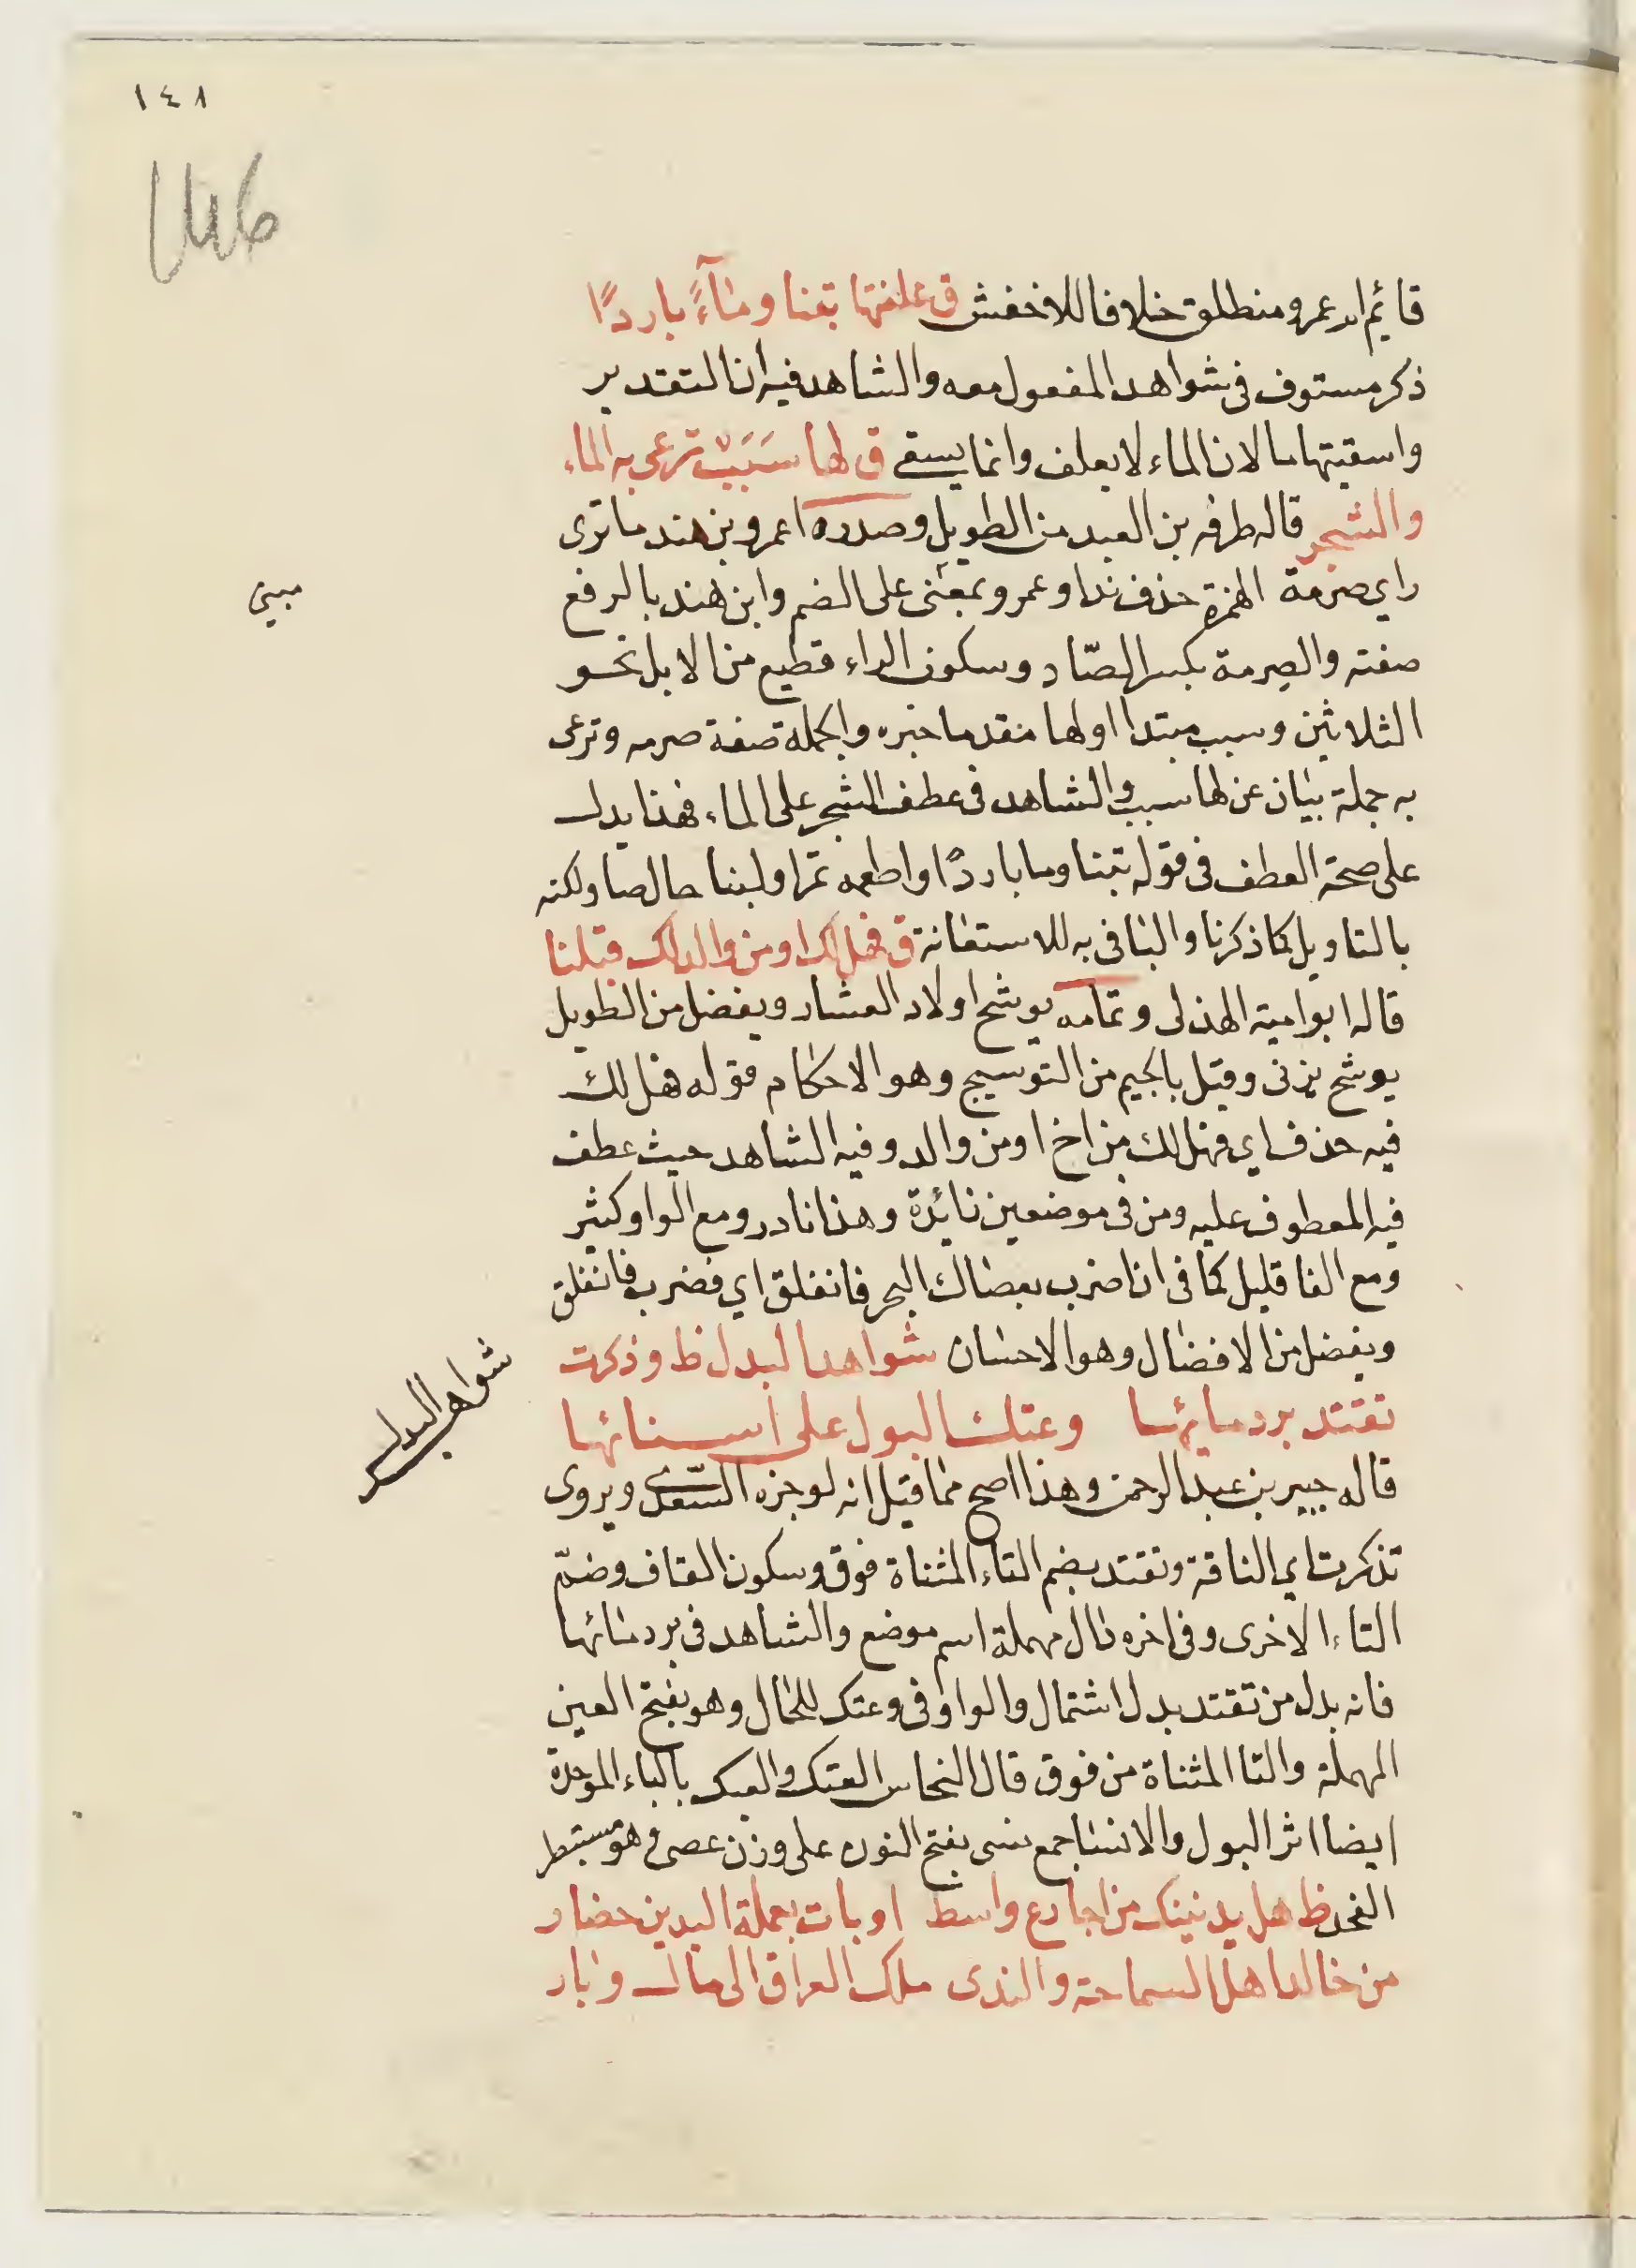 ١٤٨
قائم ام عمرو منطلق خلافا للاخفش ق علفتها تبنا وماآءً باردًا
ذكر مستوف فى شواهد المفعول معه والشاهد فيه ان التقدير
واسقيتها ما لان الماء لا يعلف وانما يسقى ق لها سَبَبٌ ترعى به الماء
والشجر قاله طرفه بن العبد من الطويل وصدره اعمرو بن هند ما ترى
راي صرمة الهمزة حذف ندا وعمرو بمعنى على الضم وابن هند بالرفع
مبنى
صفته والصِرمة بكسر الصّاد وسكون الراء قطيع من الابل نحو
الثلاثين وسبب مبتدا اولها مقدما خبره والجملة صفة صرمه وترعى
به جملة بيان عن لها سبب والشاهد فى عطف الشجر على الماء فهذا يدل
على صحة العطف فى قوله تبنا وما باردًا واطعمه تمرا ولبنا حالصا ولكنه
بالتاويل كما ذكرنا والبا فى به للاستعانة ق فهل لك او من والد لك قبلنا
قاله ابو امية الهذلى وتمامه يوشح اولاد العشار ويفضل من الطويل
يوشح يزنى وقيل بالجيم من التوسيج وهو الاحكام قوله فهل لك
فيه حذف اي فهل لك من اخ او من والد وفيه الشاهد حيث عطف
فيه المعطوف عليه ومن فى موضعين زائدة وهذا نادر ومع الواو كثير
ومع الفا قليل كما فى ان اضرب بعصاك البحر فانفلق اي فضرب فانفلق
ويفضل من الافضال وهو الاحسان شواهد البدل ظ وذكرت
شواهد البدل
تقتد برد مائها وعتك البول على انسائها
قاله جبير بن عبد الرحمن وهذا اصح مما قيل انه لوجزه السّعدى ويروى
تذكرت اي الناقة وتقتد بضم التاء المثناة فوق وسكون القاف وضمّ
التاء الاخرى وفى اخره دال مهملة اسم موضع والشاهد فى برد مائها
فانه بدل من تقتد بدل اشتمال والواو فى وعتك للحال وهو بفتح العين
المهملة والتا المثناة من فوق قال النحاس العتك والعبك بالباء الموحدة
ايضا اثر البول والانسا جمع نسى بفتح النون على وزن عصى وهو مستبطر
الفخذ ظ هل يدنينك من اجارع واسط اوبات يعملة اليدين حضار
من خالد اهل السماحة والندى ملك العراق الى مال وبار